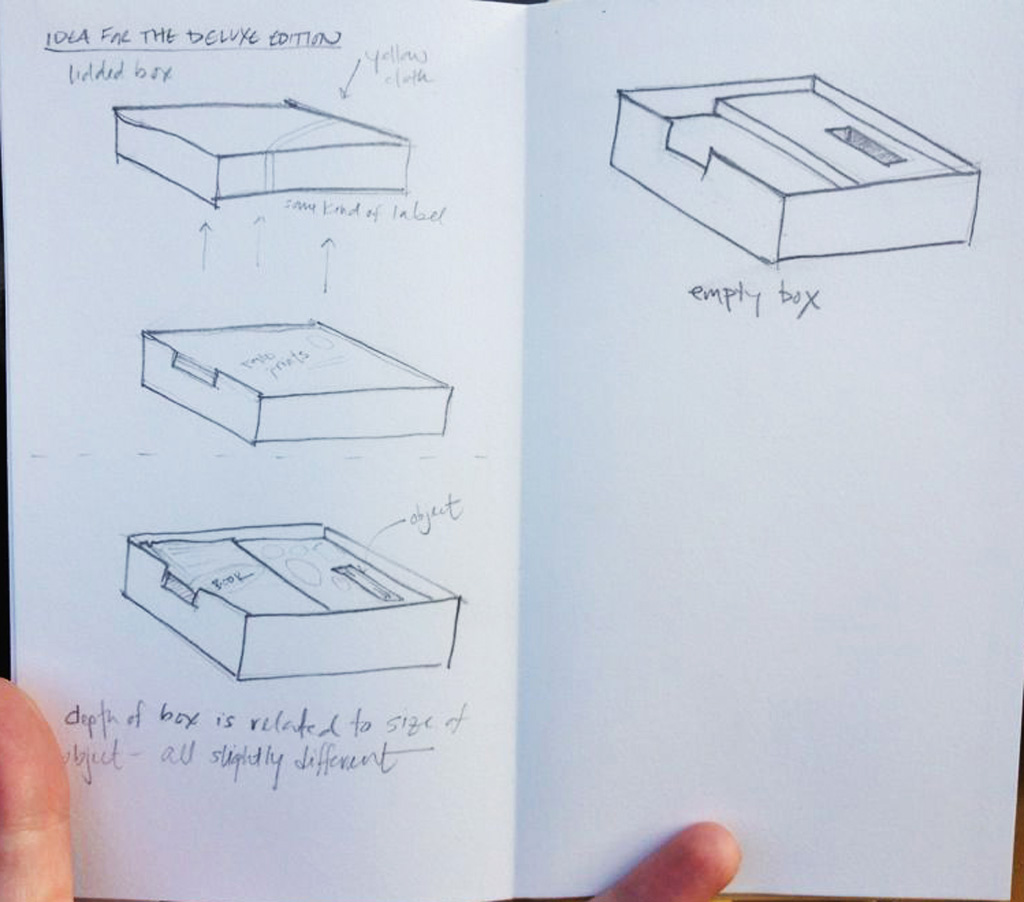 IDEA FOR THE DELUXE EDITION
lidded box
yellow
cloth
some kind of label
prints
object
BOOK
depth of box is related to size of
object - all slightly different
empty box